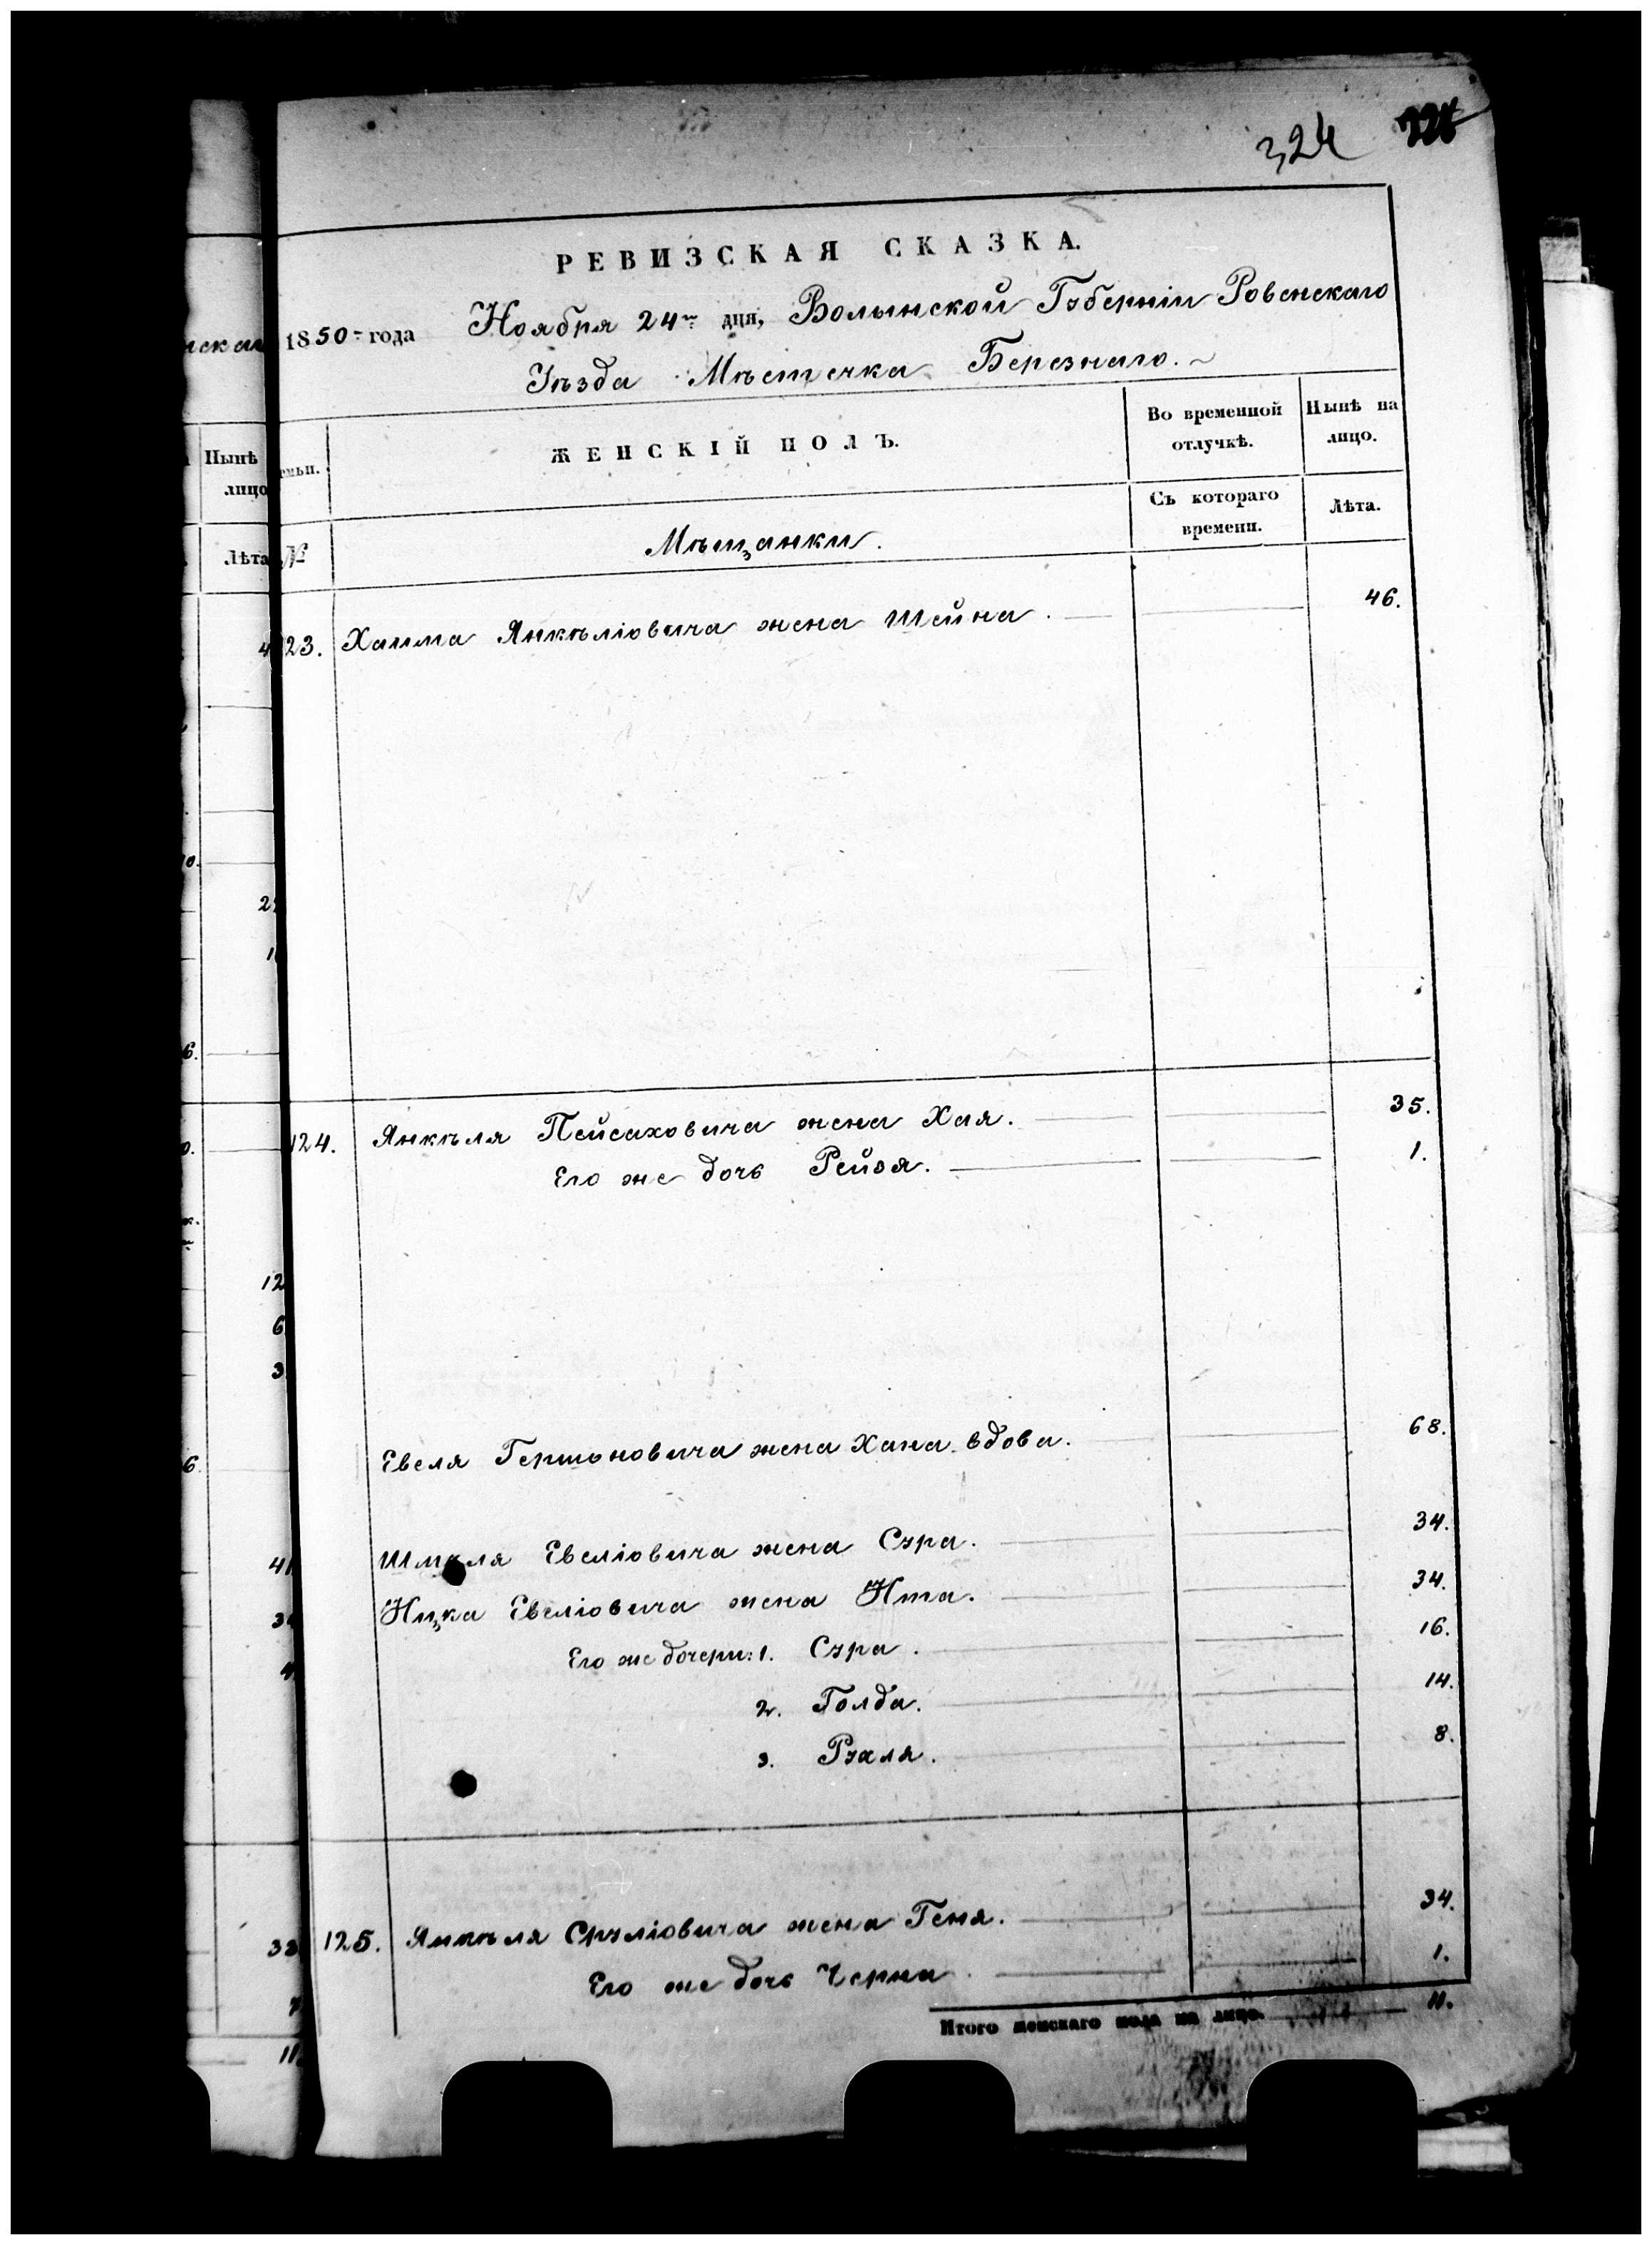 324
РЕВИЗСКАЯ СКАЗКА.
1850 года Ноября 24 дня, Волынской Губерніи Ровенскаго
Уѣзда Мѣстечка Березнаго.
ЖЕНСКІЙ ПОЛЪ.
Во временной отлучкѣ.
Нынѣ на лицо.
Нынѣ
лицо
№
Мѣщанки.
Съ котораго времени.
Лѣта.
Лѣта
123. Хаима Янкѣліовича жена Шейна. 46.
124. Янкѣля Пейсаховича жена Хая. 35.
Его же дочь Рейзя. 1.
Евеля Гершоновича жена Хана вдова. 68.
Шмуля Евеліовича жена Сура. 34.
Ицка Евеліовича жена Ита. 34.
Его же дочери: 1. Сура. 16.
2. Голда. 14.
3. Рухля. 8.
125. Янкѣля Сруліовича жена Геня. 34.
Его же дочь Черна. 1.
Итого женскаго пола на лицо. 11.